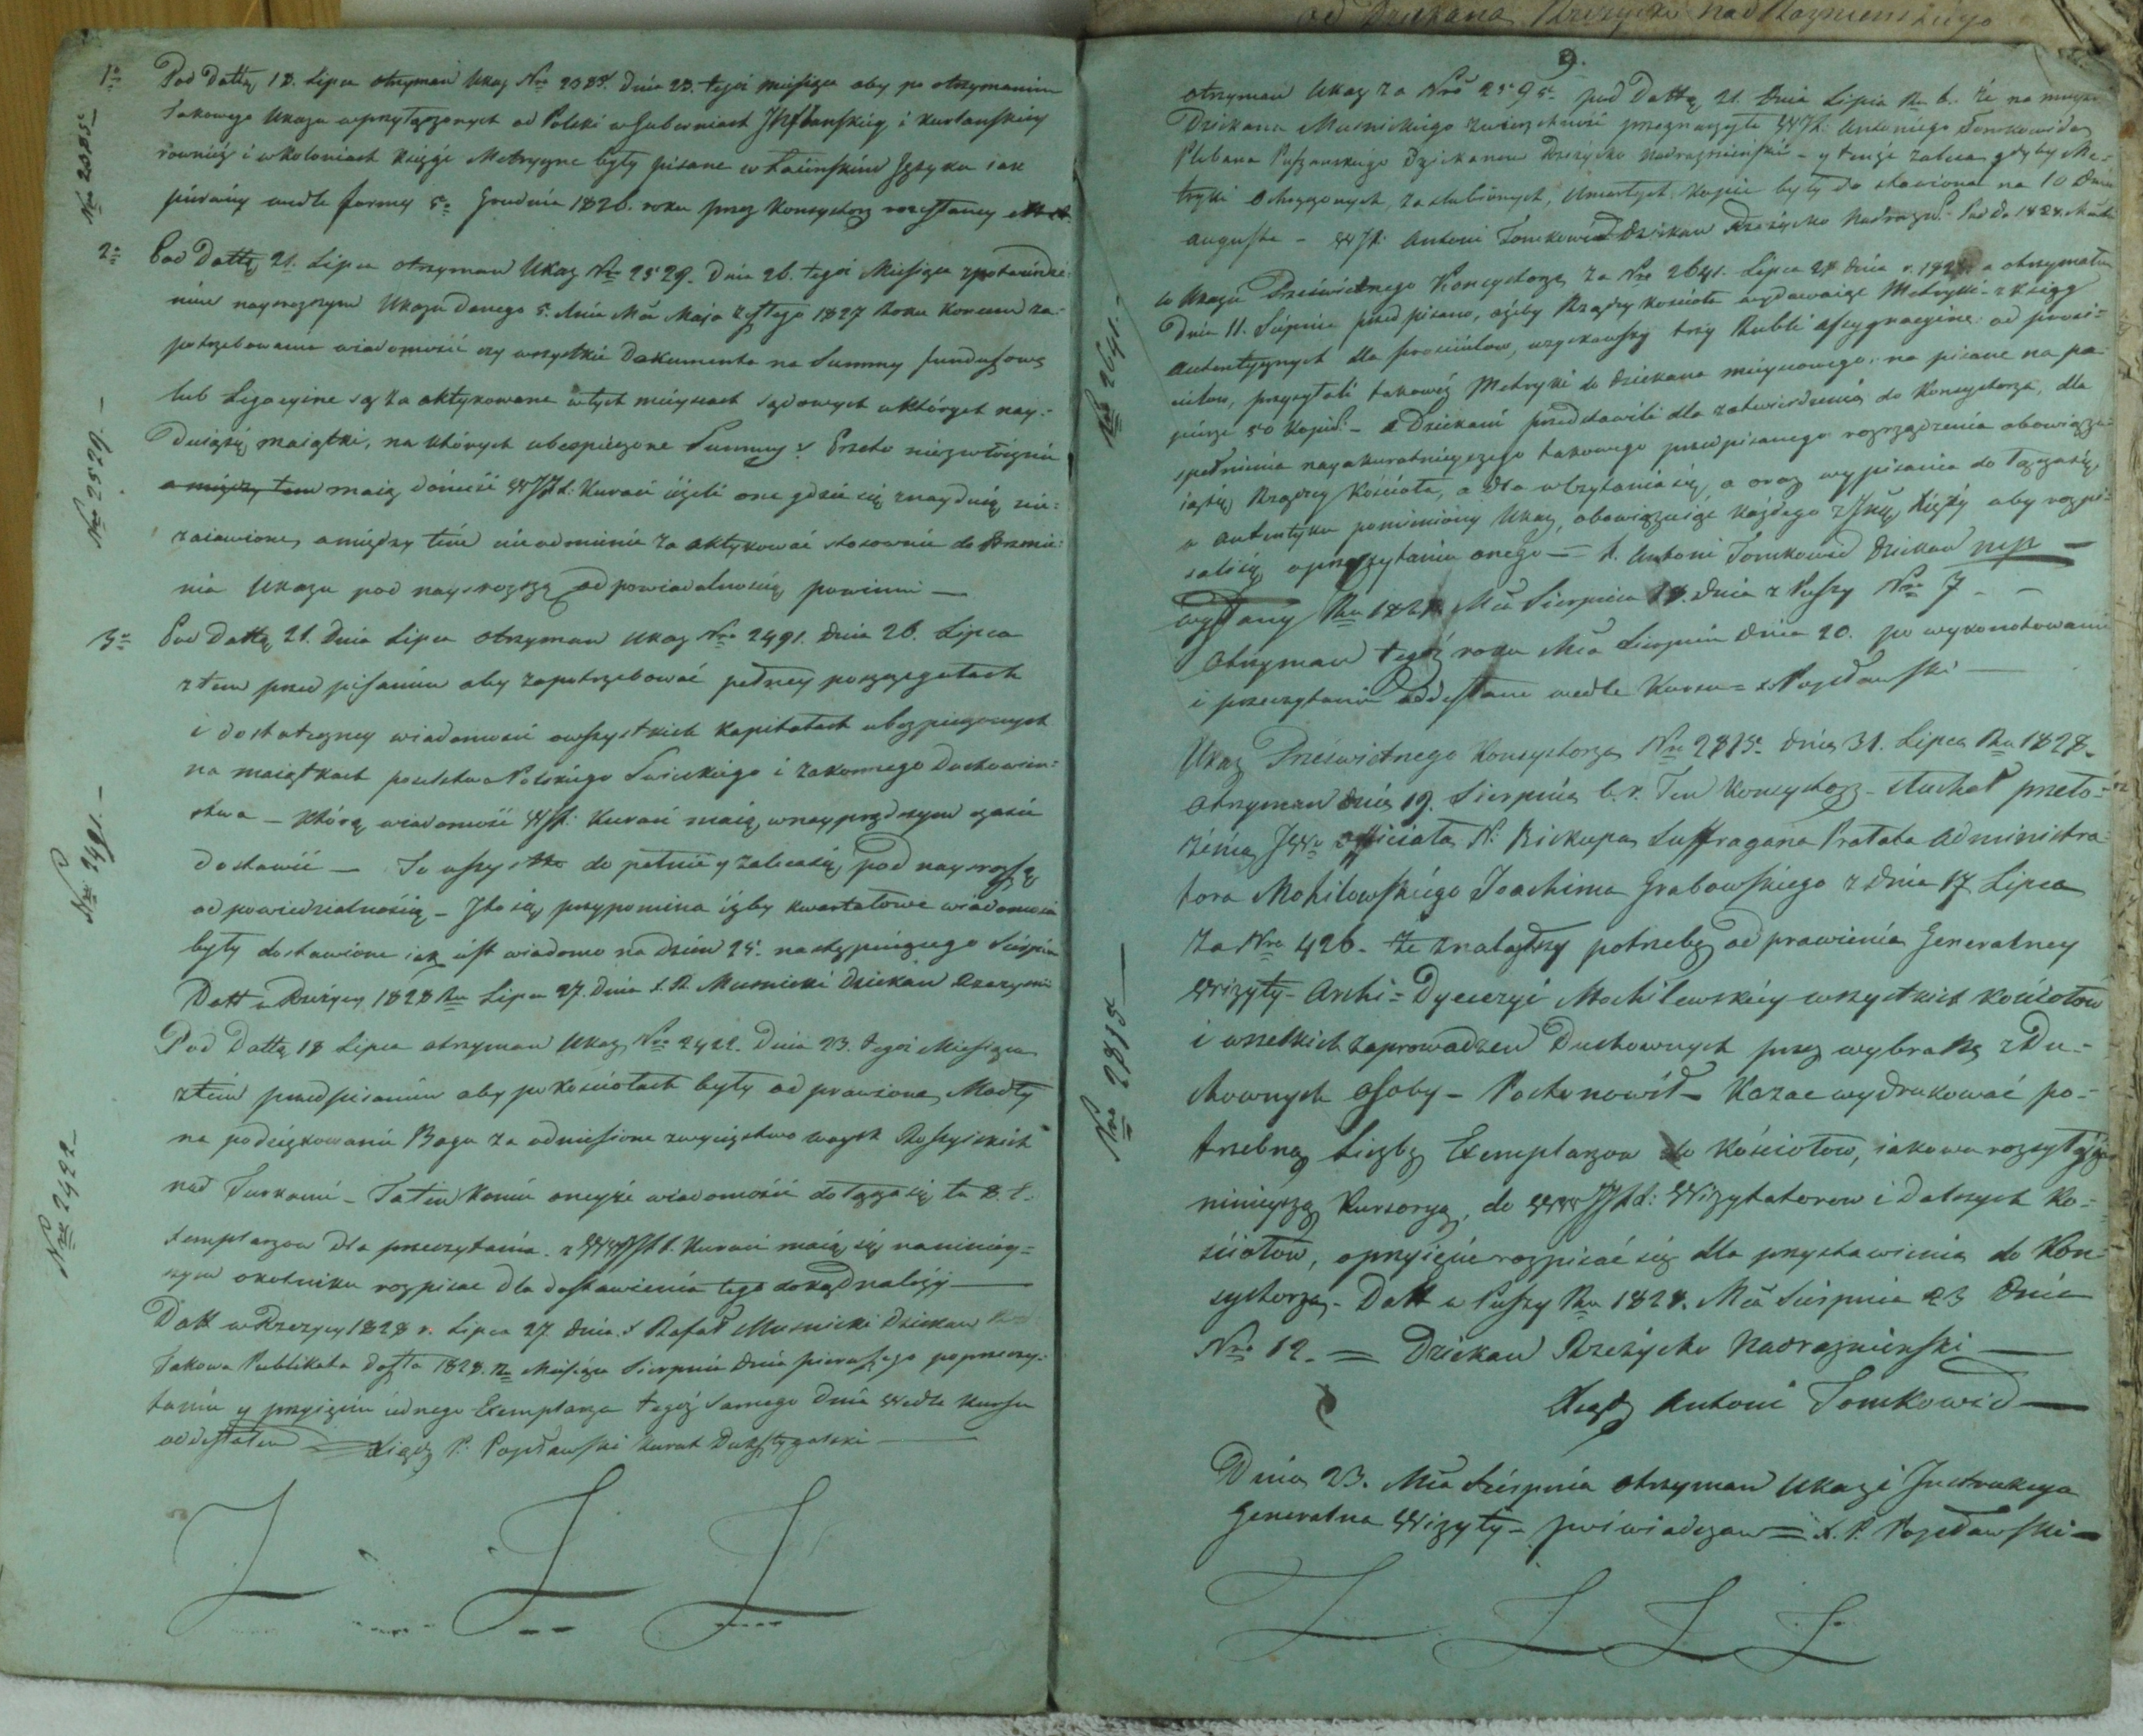 od Dziekana Rzeżycko nad Roznienskiego
1o Pod Dattą 18. Lipca otrzyman Ukaz Nro 2385. Dnia 23. tegoż miesiąca aby po otrzymaniu
takowego Ukazu w przyłączonych od Polski w Guberniach Jnflanskiey i Kurlanskiey
Nro 2385
rownież i w Koloniach księgi Metryczne były pisane w Łacinskim Języku iak
piérwiéy wedle formy 5o Grudnia 1826. roku przez Konsystorz rozesłaney
2o Pod Dattą 21. Lipca otrzyman Ukaz Nro 2529. Dnia 26. tegoż Miesiąca z potwierdze-
niem naysrozszym Ukazu danego 5. dnia Mca Maja zeszłego 1827 Roku Koncem za-
potrzebowania wiadomość czy wszystkie Dokumenta na Summy funduszowe
lub Legacyine są za aktykowane w tych mieyscach sądowych w których nay-
Nro 2529.
duią się maiątki, na których ubespieczone Summy? Przeto niezwłócznie
a między tem maią donieść WJX: Kuraci jeżeli one gdzie się znaydują nie-
zaiawione, a między tém nieodmiennie za aktykować stosownie do Brzmie-
nia Ukazu pod naysrozszą odpowiedalnoscią powinni —
3o Pod Dattą 21. Dnia Lipca otrzyman Ukaz Nro 2491. Dnia 26. Lipca
z tem przed pisaniem aby zapotrzebować pełney poszczegułach
i dostateczney wiadomości o wszystkich kapitałach ubezpieczonych
na maiątkach poulstwa Polskiego Swieckiego i zakonnego Duchowien-
stwa — Którą wiadomość WJX: Kuraci maią w nayprędszym czasie
Nro 2491. —
dostawić — To wszystko do pełnie y zaleca się pod naysrozszą
odpowiedzialnoscią — Jto się przypomina iżby kwartałowe wiadomości
były dostawione iak iest wiadomo na dzien 25. następuiącego Sierpnia
Datt w Rzeżycy 1828 Ru Lipca 27. Dnia X. R. Musnicki Dziekan
Pod Dattą 18 Lipca otrzyman Ukaz Nro 2422. Dnia 23. tegoż Miesiąca
z tém przedpisaniem aby po kosciołach były odprawione Modły
na podziękowanie Bogu za odniesione zwycięstwo woysk Rossyiskich
Nro 2422
nad Turkami — Tatem koncem oneyże wiadomość dołącza się tu 8. E-
xemplarzow dla przeczytania. z WWJXX. Kuraci maią się na niniey-
szym okolniku rozpisac dla dostawienia tego dokąd należy —
Datt w Rzezycy 1828 r. Lipca 27 dnia. X Rafał Musnicki Dziekan
Takowa Publikata doszła 1828. Ru Miesiąca Sierpnia dnia pierwszego po przeczy-
taniu y przyięciu iednego Exemplarza tegóż samego dnia Wedle Kursu
odesłałem = Xiądz P. Pojedawski Kurat Dukstygalski —
9.
otrzyman Ukaz za Nro 2595. pod Dattą 21. Dnia Lipca Ru b. że na mieysce
Dziekana Musnickiego zwierzchność przeznaczyła WJX: Antoniego Tomkowida
Plebana Puszanskiego Dziekanem Rzeżycko Nadrozniénskim — y tenże zaleca gdyby Me-
tryki Ochrzczonych, zaslubionych, Umarłych kopie były dostawione na 10 Dnia
Augusta — WJX: Antoni Tomkowid Dziekan Rzeżycko Nadrozn:
w Ukazie Prześwietnego Konsystorza za Nro 2641. Lipca 24 dnia r. 1828. a otrzymałem
Dnia 11. Sierpnia przed pisano, ażeby Rządcy kościoła wydawaiąc Metryki z ksiąg
Autentycznych dla prosicielow, uzyskawszy trzy Rubli assygnacyine od prosi-
Nro 2641.
cielow, przysyłali takowéż Metryki do dziekana mieyscowego, na pisane na pa-
piérze 50 kopié: — a Dziekani przedstawili dla zatwierdzenia do Konsystorza, dla
spełnienia nayakuratnieyszego takowego przedpisanego rozrządzenia obowiązu-
ią się Rządcy Kościoła, a dla wczytania się, a oraz wypisania do łącza się,
w autentyku pomieniony Ukaz, obowiązuiąc każdego z Jch Xięży aby rozpi-
sali się o przeczytaniu onego — X. Antoni Tomkowid dziekan mp —
Wysłany Ru 1828 Mca Sierpnia 18. dnia z Puszy Nro 7 —
Otrzyman tegóż roku Mca Sierpnia dnia 20. po wykonotowaniu
i przeczytaniu oddesłane wedle Kursu = X Pojedawski —
Ukaz Prześwietnego Konsystorza Nro 2815. dnia 31. Lipca Ru 1828.
otrzyman dnia 19. Sierpnia b. r. Ten Konsystorz — słuchał przeło-
żenia JWo Officiała N: Biskupa Suffragana Prałata Administra-
tora Mohilowskiego Joachima Grabowskiego z dnia 17 Lipca
za Nro 426. że znalazłszy potrzebę odprawienia Generalney
Wizyty — Archi-Dyecezyi Mochilewskiey wszystkich kościołow
i wszelkich zaprowadzen Duchownych przez wybraną z Du-
Nro 2815 —
chownych osoby — Postanowił — Kazac wydrukować po-
trzebną Liczbę Exemplarzow do Kościołow, iakowe rozsyłaiąc
ninieyszą Kursoryą, do WWJXX: Wizytatorow i dalszych Ko-
ściołow, o przyięcie rozpisać się dla przystawienia do Kon-
systorza — Datt w Puszy Ru 1828. Mca Sierpnia 23 dnia
Nro 12. = Dziekan Rzeżycko Nadroznienski —
Xiądz Antoni Tomkowid —
Dnia 23. Mca Sierpnia otrzyman Ukaz i Jnstrukcya
Generalna Wizyty — poświadczam = X. P. Pojedawski —